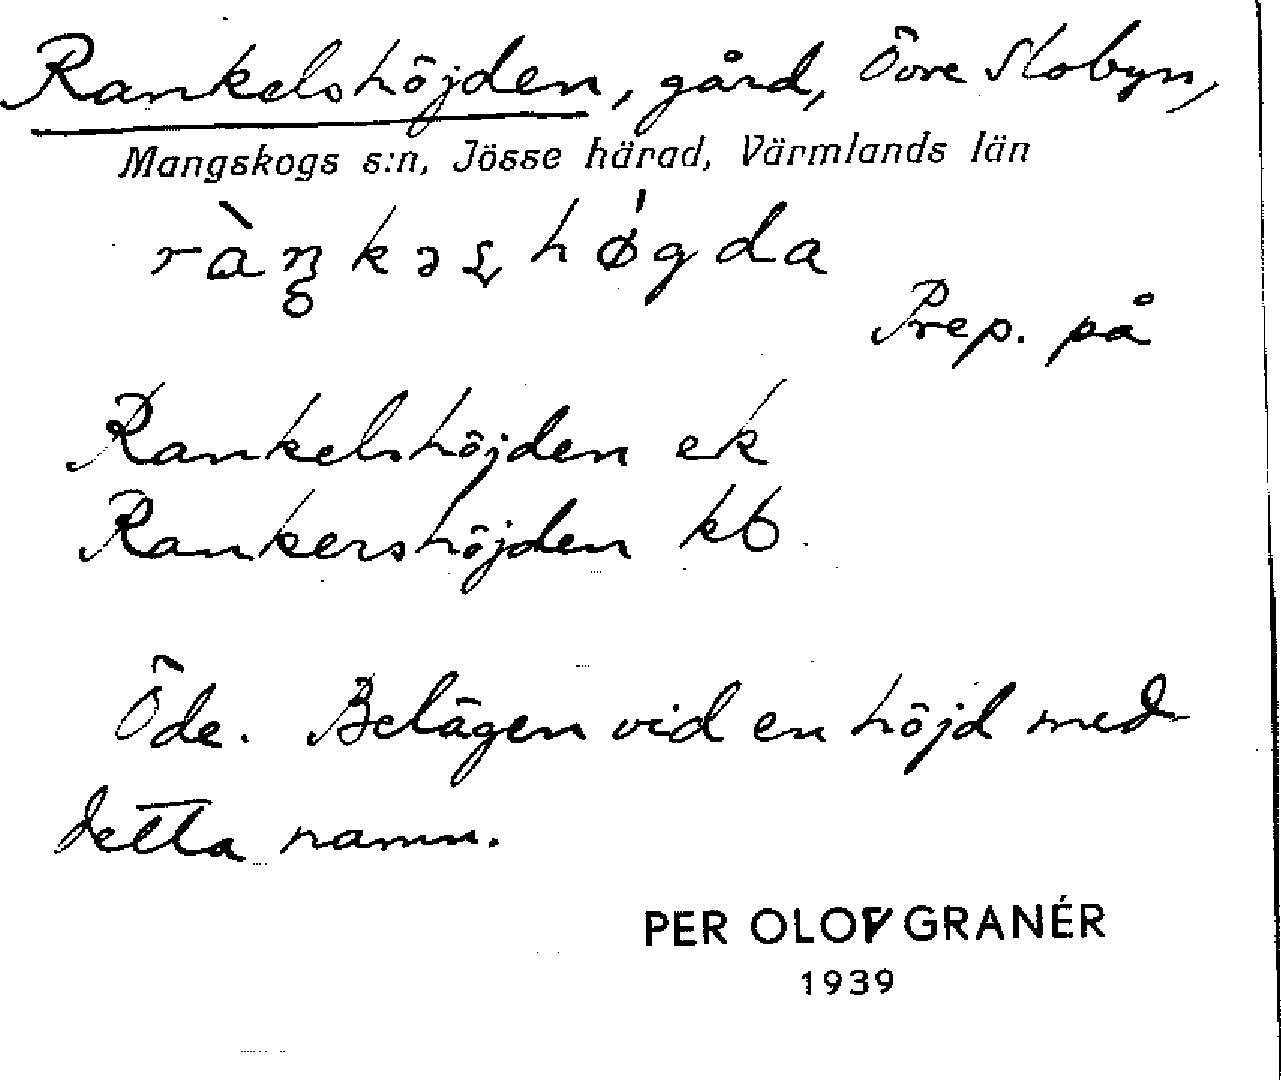 Rankelshöjden, gård, Övre Slobyn,
Mangskogs s:n, Jösse härad, Värmlands län
Prep. på
Rankelshöjden ek
Rankershöjden kb
Öde. Belägen vid en höjd med
detta namn.
PER OLOV GRANÉR
1939